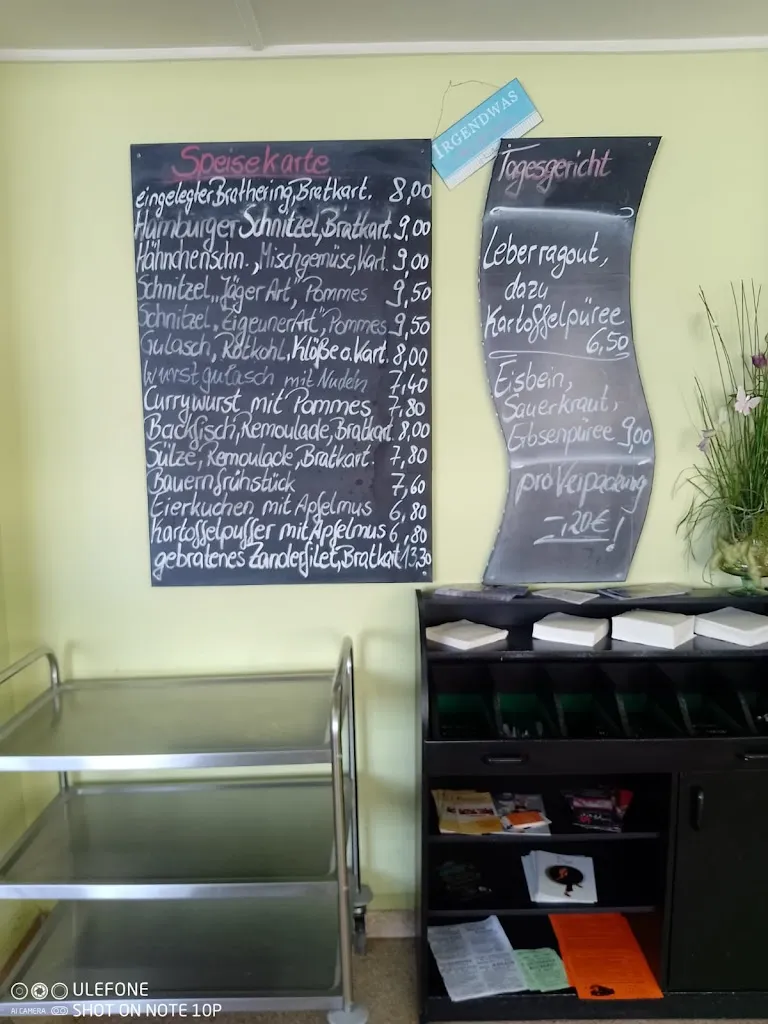 Speisekarte
eingelegter Brathering, Bratkart. 8,00
Hamburger Schnitzel, Bratkart. 9,00
Hähnchenschn., Mischgemüse, Kart. 9,00
Schnitzel „Jäger Art", Pommes 9,50
Schnitzel „Eigeuner Art", Pommes 9,50
Gulasch, Rotkohl, Klöße o. Kart. 8,00
Wurstgulasch mit Nudeln 7,40
Currywurst mit Pommes 7,80
Backfisch, Remoulade, Bratkart. 8,00
Sülze, Remoulade, Bratkart. 7,80
Bauernfrühstück 7,60
Eierkuchen mit Apfelmus 6,80
Kartoffelpuffer mit Apfelmus 6,80
gebratenes Zanderfilet, Bratkart 13,30
IRGENDWAS
Tagesgericht
Leberragout,
dazu
Kartoffelpüree
6,50
Eisbein,
Sauerkraut,
Erbsenpüree 9,00
pro Verpackung
-,20€!
ULEFONE
AI CAMERA SHOT ON NOTE 10P